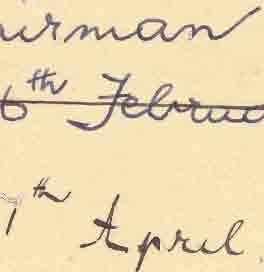 urman
6th Februa
7th April.